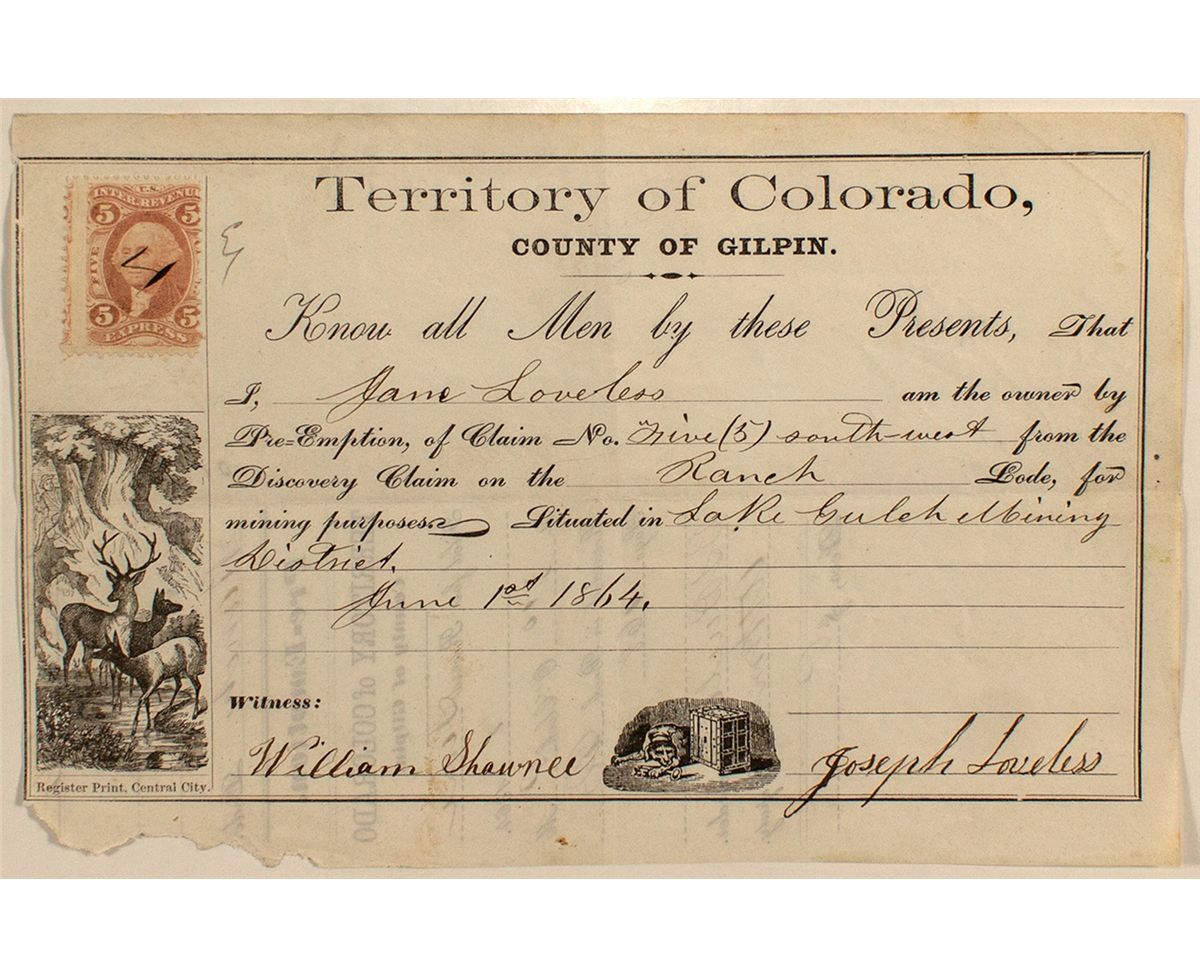 U.S.
INTER. REVENUE
5 5
FIVE
5 5
EXPRESS
Territory of Colorado,
COUNTY OF GILPIN.
Know all Men by these Presents, That
I, Jane Loveless am the owner by
Pre=Emption, of Claim No. Five (5) south-west from the
Discovery Claim on the Ranch Lode, for
mining purposes Situated in Lake Gulch Mining
District.
June 1st 1864.
Witness:
William Shawnee Joseph Loveless
Register Print, Central City.